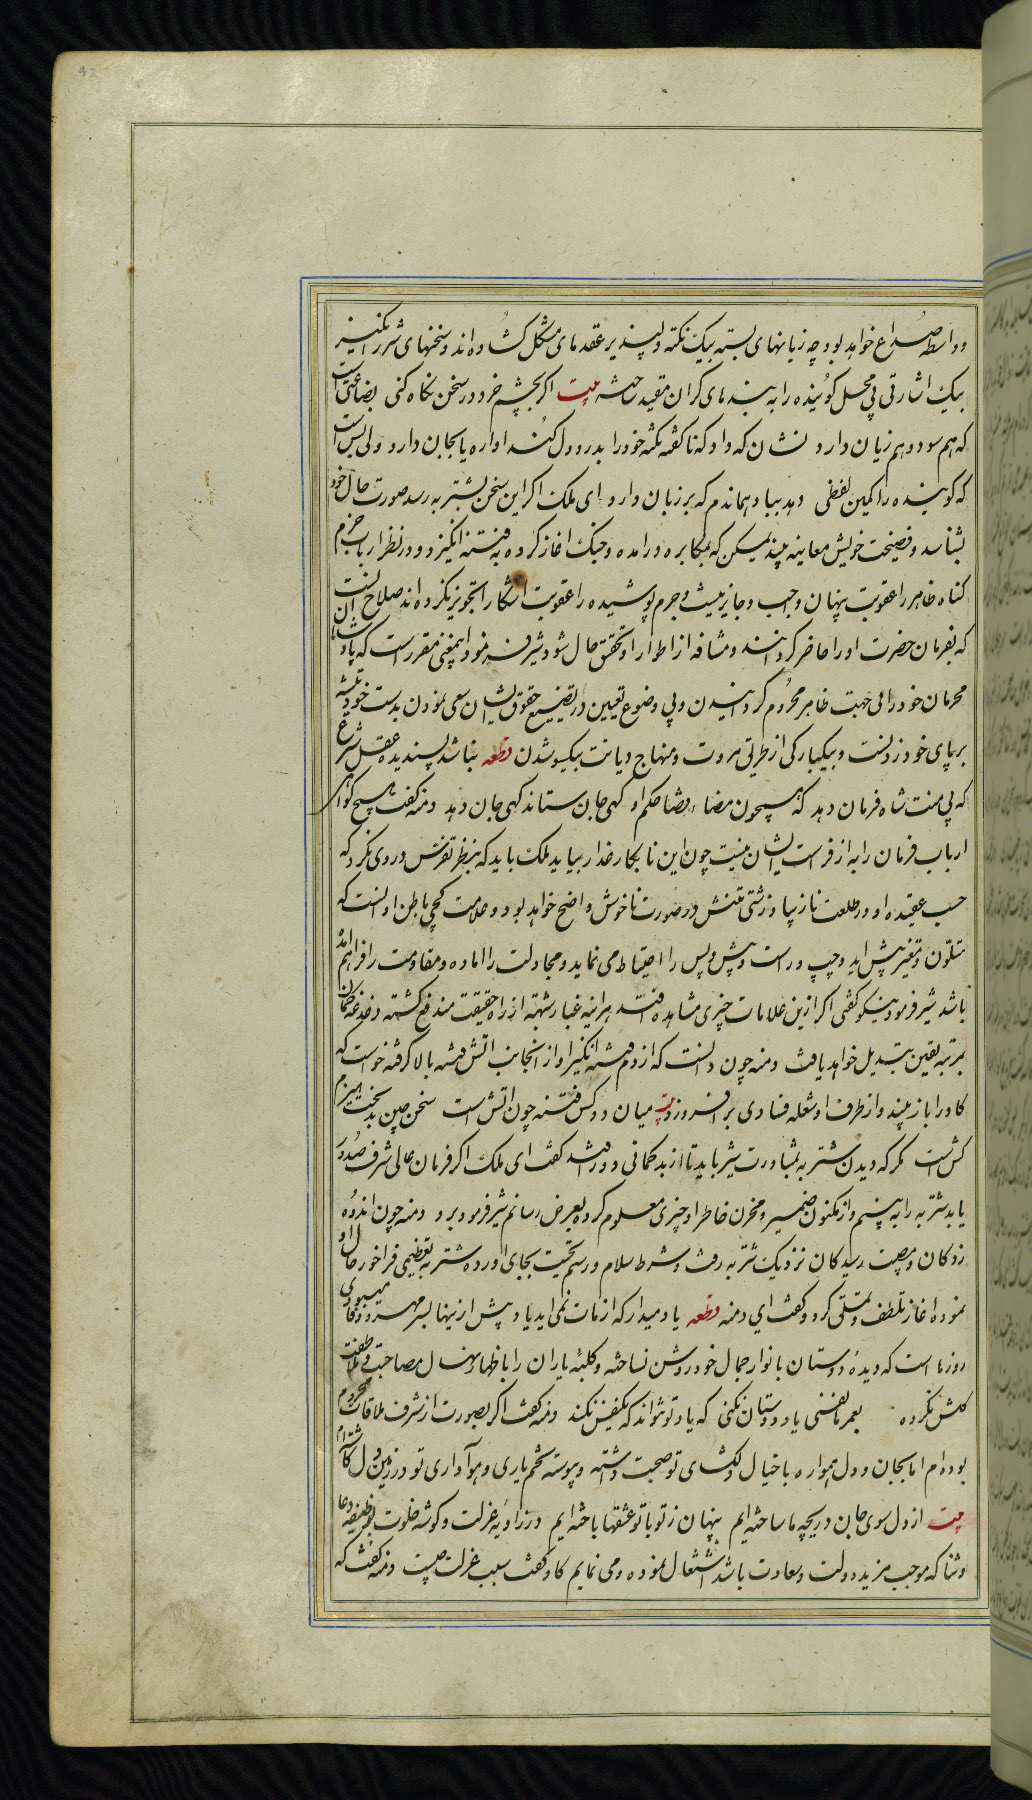 و واسطه صداع خواهد بود چه زبانهای بسته بیک نکته دلپذیر عقدهای مشکل کشاده اند و سخنهای شررانگیز
بیک اشارتی بی محل کوینده را به بندهای کران مقید ساخته بیت اکر بچشم خرد در سخن نکاه کنی بضاعتی است
که هم سود و هم زیان دارد نشان که داد که ناکفته نکته خود را بدرد دل کند اواره یا بجان دارد ولی بس است
که کوینده را کمین لفظی دهد بباد هماندم که بر زبان دارد ای ملک اکر این سخن بشتربه رسد صورت حال خود
بشناسد و فضیحت خویش معاینه بیند یمکن که بمکابره درامده و جنک اغاز کرده به فتنه انکیزد و در نظر ارباب حزم
کناه ظاهر را عقوبت پنهان واجب و جایز نیست و جرم پوشیده را عقوبت اشکارا تجویز نکرده اند صلاح انست
که بفرمان حضرت او را حاضر کردانند و مشافه از اطوار او تحقق حال شود شیر فرمود اینمعنی مقررست که پادشاهان
محرمان خود را بی جهت ظاهر محروم کردانیدن و بی وضوع تعیین در تضییع حقوق ایشان سعی نمودن بدست خود تیشه
بر پای خود زدنست و بیکبارکی از طریق مروت و منهاج دیانت بیکسو شدن قطعه نباشد پسندیده عقل و شرع
که بی منت شاه فرمان دهد که همچون مضاء قضا حکم او کهی جان ستاند کهی جان دهد دمنه کفت هیچ کواهی
ارباب فرمان را به از فراست ایشان نیست چون این نابکار غدار بیاید ملک باید که بنظر تفرس در وی نکرد که
حسب عقیده او در طلعت نازیبا و زشتی تنش در صورت ناخوش واضح خواهد بود و علامت کجی باطن او انست که
متلون و متغیر پیش اید و چپ و راست و پیش و پس را احتیاط می نماید و مجادلت را اماده و مقاومت را فراهم امده
باشد شیر فرمود نیکو کفتی اکر ازین علامات چیزی مشاهده افتد هراینه غبار شبهه از راه حقیقت مندفع کشته دغدغه کمان
بمرتبه یقین تبدیل خواهد یافت دمنه چون دانست که از دم فتنه انکیز او از انجانب اتش فتنه بالا کرفته خواست که
کاو را باز بیند و از طرف او شعله فسادی بر افروزد بیت میان دو کس فتنه چون اتش است سخن چین بدبخت هیزم
کش است فکر که دیدن شتربه بمشاورت شیر باید تا از بدکمانی دور باشد کفت ای ملک اکر فرمان عالی شرف صدور
یابد شتربه را به بینم و از مکنون ضمیر و مخزن خاطر او چیزی معلوم کرده بعرض رسانم شیر فرمود برو دمنه چون اندوه
زدکان و مصیبت رسیدکان نزدیک شتربه رفت و شرط سلام و رسم تحیت بجای اورده شتربه تعظیمی فراخور حال او
نموده اغاز تلطف و تملق کرد و کفت ای دمنه قطعه یاد میدار که از مات نمی اید یاد پیش ازینها بسر مهر و وفا میبودی
روزها است که دیده دوستان بانوار جمال خود روشن نساخته و کلبه یاران را باظهار نهال مصاحبت و ملاطفت
کلشن نکرده بعمر نفسی یاد دوستان نکنی که یاد تو نتواند که یکنفس نکند دمنه کفت اکر بصورت از شرف ملاقات محروم
بوده ام اما بجان و دل همواره با خیال دلکشای تو صحبت داشته و پیوسته تخم یاری و هواداری تو در زمین دل کاشته ام
بیت از دل سوی جان دریچه ها ساخته ایم پنهان ز تو با تو عشقها باخته ایم در زاویه عزلت و کوشه خلوت بوظیفه دعا
و ثنا که موجب مزید دولت و سعادت باشد اشتغال نموده و می نمایم کاو کفت سبب عزلت چیست دمنه کفت که